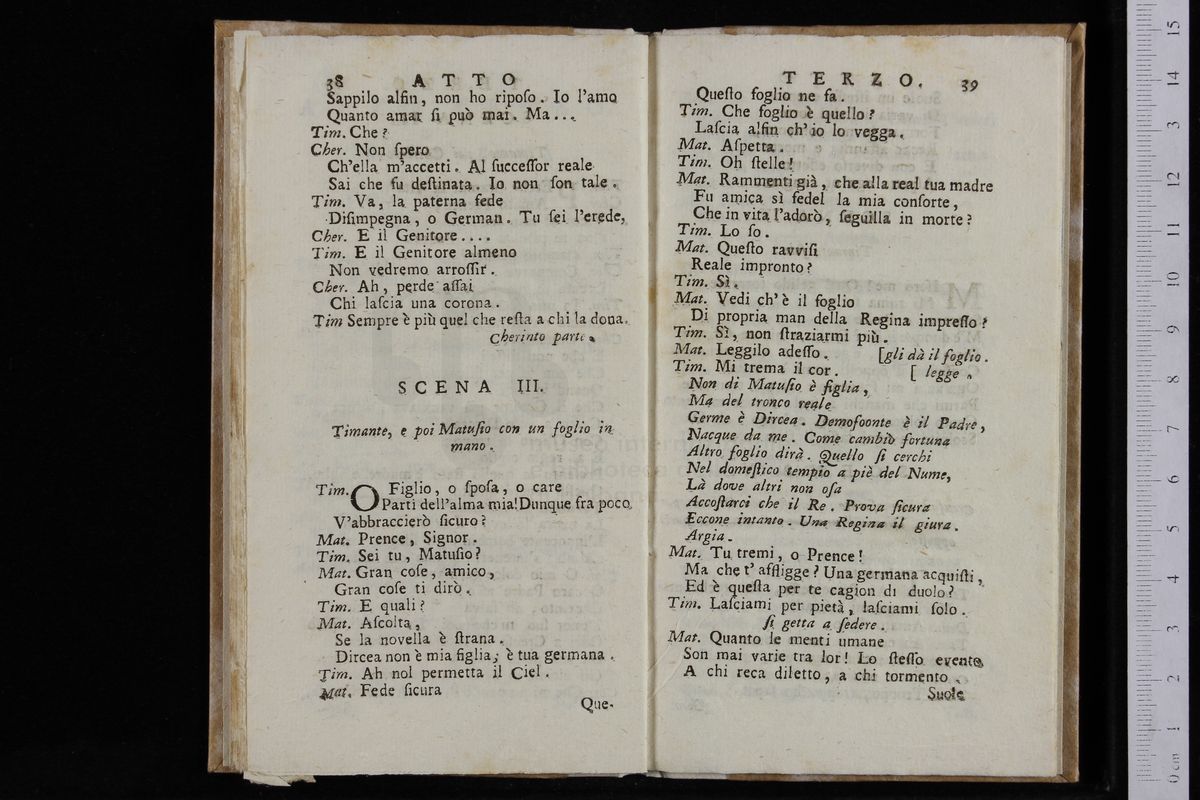 38 ATTO
Sappilo alfin, non ho riposo. Io l'amo
Quanto amar si può mai. Ma...
Tim. Che?
Cher. Non spero
Ch'ella m'accetti. Al successor reale
Sai che fu destinata. Io non son tale.
Tim. Va, la paterna fede
Disimpegna, o German. Tu sei l'erede,
Cher. E il Genitore....
Tim. E il Genitore almeno
Non vedremo arrossir.
Cher. Ah, perde assai
Chi lascia una corona.
Tim Sempre è più quel che resta a chi la dona.
Cherinto parte.
SCENA III.
Timante, e poi Matusio con un foglio in
mano.
Tim. O Figlio, o sposa, o care
Parti dell'alma mia! Dunque fra poco
V'abbraccierò sicuro?
Mat. Prence, Signor.
Tim. Sei tu, Matusio?
Mat. Gran cose, amico,
Gran cose ti dirò.
Tim. E quali?
Mat. Ascolta,
Se la novella è strana.
Dircea non è mia figlia; è tua germana.
Tim. Ah nol permetta il Ciel.
Mat. Fede sicura
Que-
TERZO. 39
Questo foglio ne fa.
Tim. Che foglio è quello?
Lascia alfin ch'io lo vegga.
Mat. Aspetta.
Tim. Oh stelle!
Mat. Rammenti già, che alla real tua madre
Fu amica sì fedel la mia consorte,
Che in vita l'adorò, seguilla in morte?
Tim. Lo so.
Mat. Questo ravvisi
Reale impronto?
Tim. Sì.
Mat. Vedi ch'è il foglio
Di propria man della Regina impresso?
Tim. Sì, non straziarmi più.
Mat. Leggilo adesso. [gli dà il foglio.
Tim. Mi trema il cor. [ legge.
Non di Matusio è figlia,
Ma del tronco reale
Germe è Dircea. Demofoonte è il Padre,
Nacque da me. Come cambiò fortuna
Altro foglio dirà. Quello si cerchi
Nel domestico tempio a piè del Nume,
Là dove altri non osa
Accostarci che il Re. Prova sicura
Eccone intanto. Una Regina il giura.
Argia.
Mat. Tu tremi, o Prence!
Ma che t'affligge? Una germana acquisti,
Ed è questa per te cagion di duolo?
Tim. Lasciami per pietà, lasciami solo.
si getta a sedere.
Mat. Quanto le menti umane
Son mai varie tra lor! Lo stesso evento
A chi reca diletto, a chi tormento
Suole
0 cm 1 2 3 4 5 6 7 8 9 10 11 12 13 14 15